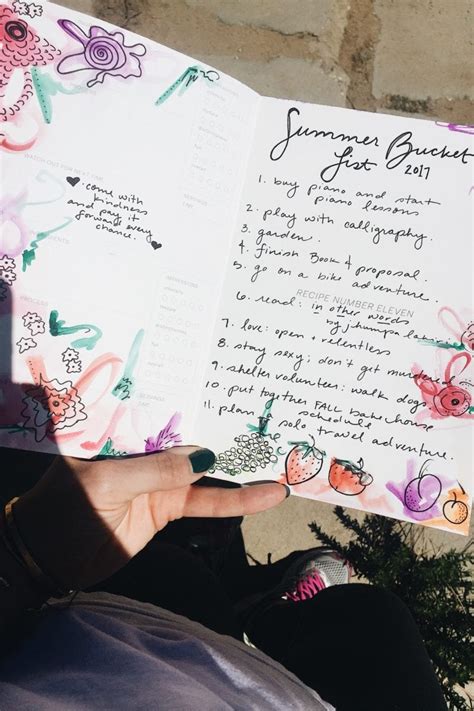 WATCH OUT FOR NEXT TIME
♥ come with
kindness
and pay it
forward every
chance. ♥
EVENTS
Summer Bucket
List 2017
1. buy piano and start
piano lessons
2. play with calligraphy.
3. garden.
4. finish Book 4 proposal.
5. go on a bike adventure.
RECIPE NUMBER ELEVEN
6. read: in other words
by jhumpa lahiri
7. love: open + relentless
8. stay sexy; don't get murdered
9. shelter volunteer: walk dogs
10. put together FALL bakehouse
schedule
11. plan a solo travel adventure.